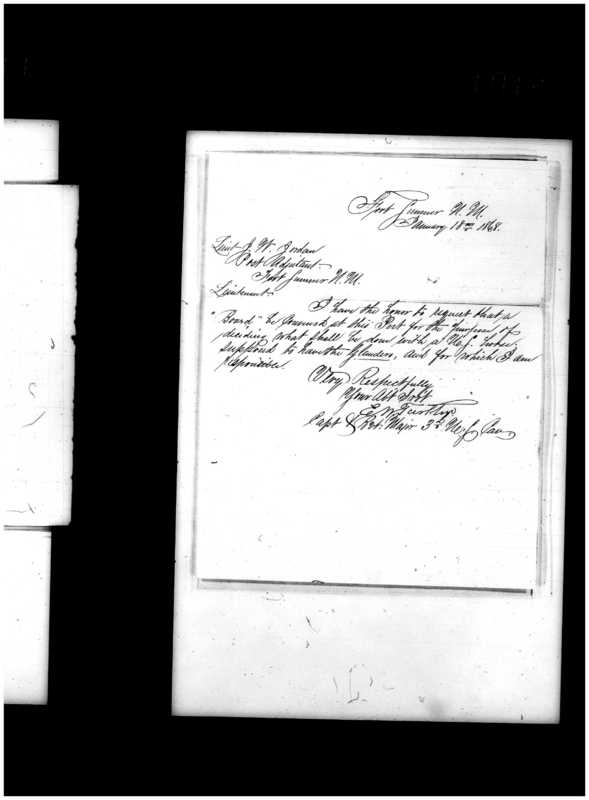 Fort Sumner N. M.
January 18th 1868.
Lieut J. W. Jordan
Post Adjutant
Fort Sumner N. M.
Lieutenant
I have the honor to request that a
"Board" be convened at this Post for the purpose of
deciding what shall be done with a U.S. horse
supposed to have the Glanders, and for which I am
responsible.
Very Respectfully
Your Obt Svt
Capt & Bvt. Major 3d U.S. Cav